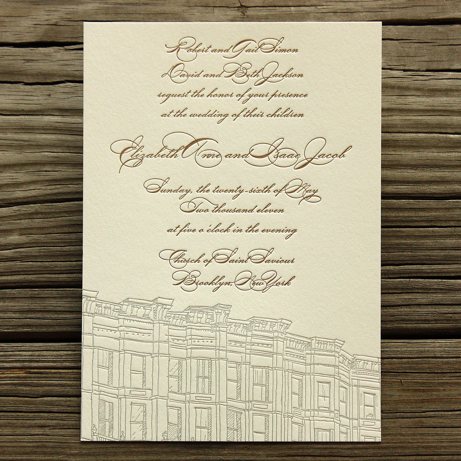 Robert and Gail Simon
David and Beth Jackson
request the honor of your presence
at the wedding of their children
Elizabeth Anne and Isaac Jacob
Sunday, the twenty-sixth of May
Two thousand eleven
at five o'clock in the evening
Church of Saint Saviour
Brooklyn, New York